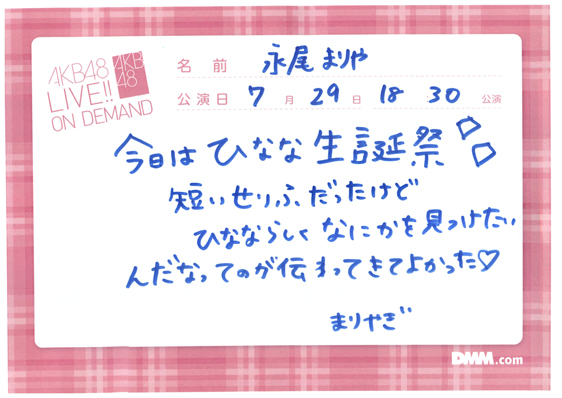 AKB48
LIVE!!
ON DEMAND
AKB
48
名前 永尾まりや
公演日 7月29日 18 30 公演
今日はひなな生誕祭
短いせりふだったけど
ひなならしくなにかを見つけたい
んだなってのが伝わってきてよかった♡
まりやぎ
DMM.com